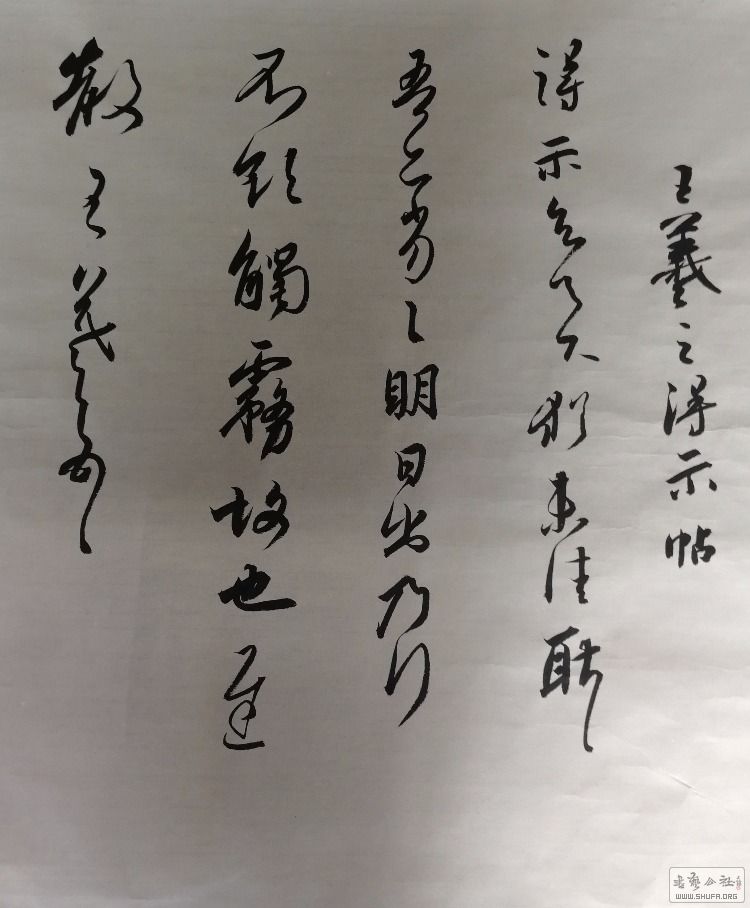 王羲之得示帖
得示知足下犹未佳耿耿
吾亦劣劣明日出乃行
不欲触雾故也迟
散王羲之顿首
書法公社
WWW.SHUFA.ORG